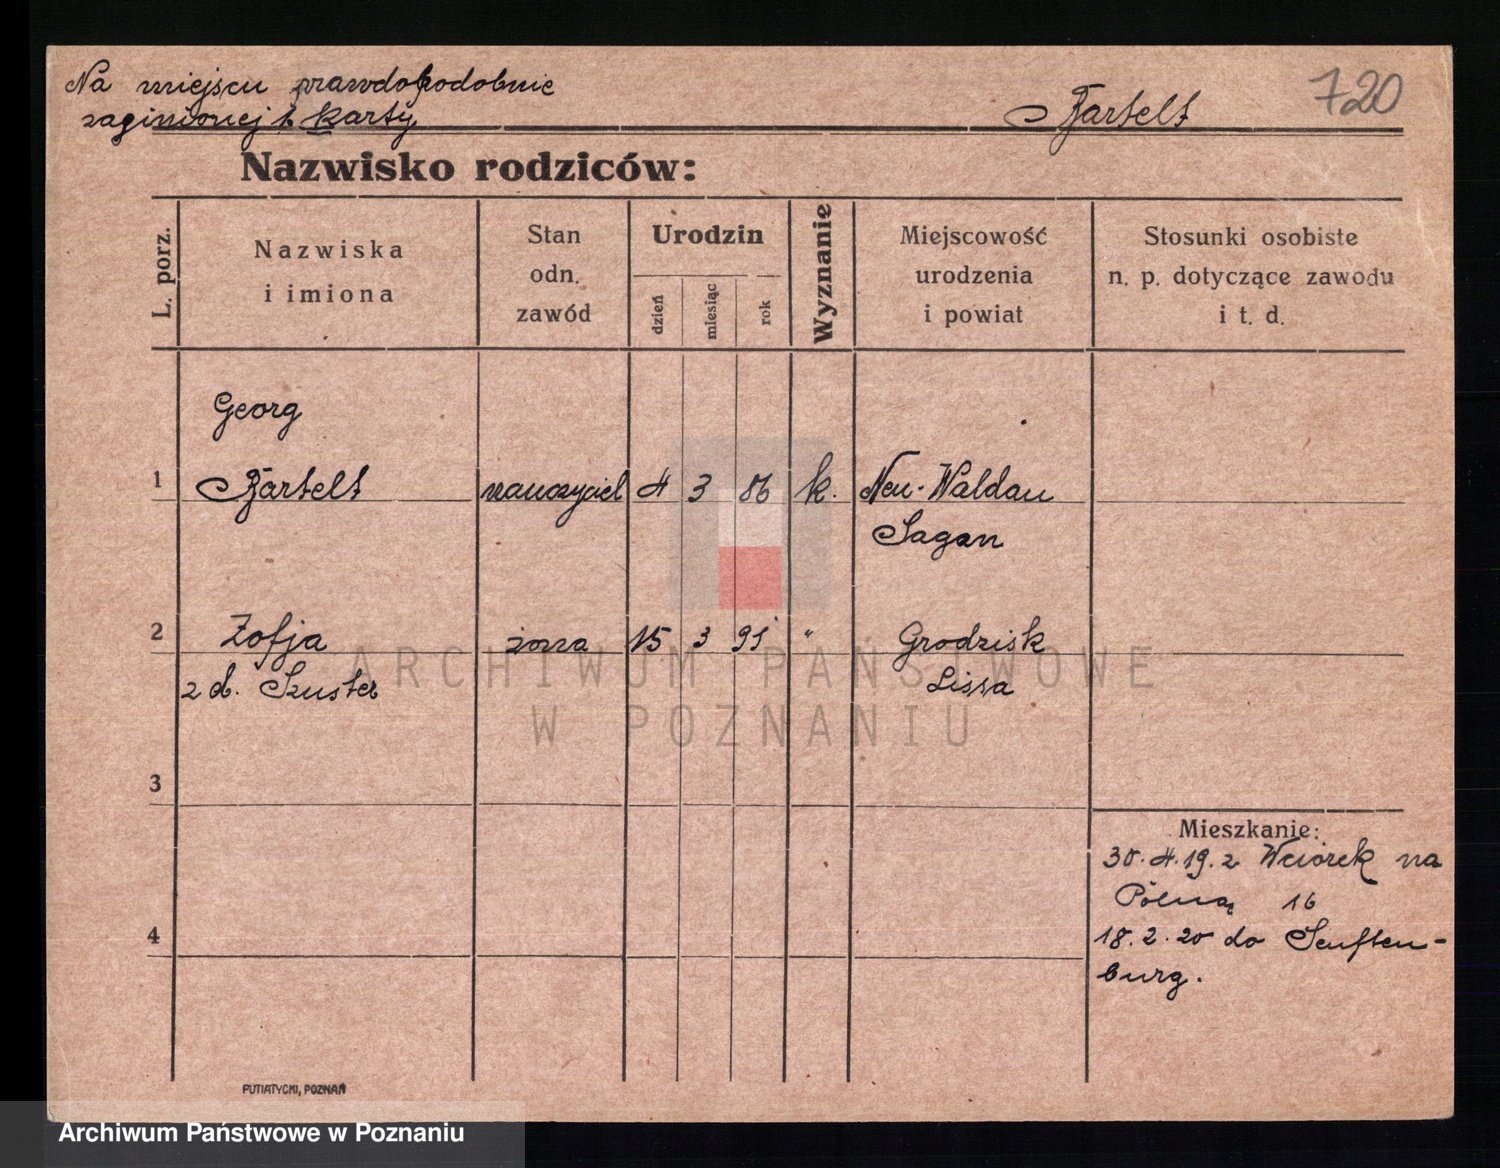 Na miejscu prawdopodobnie
zaginionej karty
Bartelt
720
Nazwisko rodziców:
L. porz.
Nazwiska
i imiona
Stan
odn.
zawód
Urodzin
dzień
miesiąc
rok
Wyznanie
Miejscowość
urodzenia
i powiat
Stosunki osobiste
n. p. dotyczące zawodu
i t. d.
Georg
1 Bartelt nauczyciel 4 3 86 k. Neu-Waldau
Sagan
2 Zofja żona 15 3 91 " Grodzisk
z d. Szuster Lissa
3
Mieszkanie:
30.4.19. z Wciórek na
Polną 16
4
18.2.20 do Senften-
burg.
PUTIATYCKI, POZNAŃ
ARCHIWUM PAŃSTWOWE
W POZNANIU
Archiwum Państwowe w Poznaniu